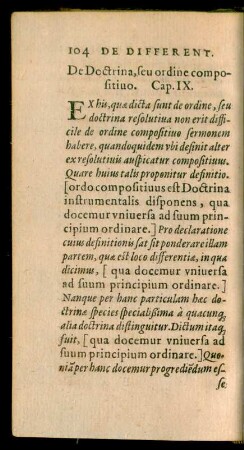 104 DE DIFFERENT.
De Doctrina, seu ordine compo-
sitiuo. Cap. IX.
EX his, quæ dicta sunt de ordine, seu
doctrina resolutiua non erit diffi-
cile de ordine compositiuo sermonem
habere, quandoquidem vbi definit alter
ex resolutiuis auspicatur compositiuus.
Quare huius talis proponitur definitio.
[ordo compositiuus est Doctrina
instrumentalis disponens, qua
docemur vniuersa ad suum prin-
cipium ordinare.] Pro declaratione
cuius definitionis sat sit ponderare illam
partem, quæ est loco differentiæ, in qua
dicimus, [ qua docemur vniuersa
ad suum principium ordinare.]
Nanque per hanc particulam hæc do-
ctrinæ species specialissima à quacunq;
alia doctrina distinguitur. Dictum itaq;
fuit, [ qua docemur vniuersa ad
suum principium ordinare.] Quo-
niã per hanc docemur progrediẽdum es-
se